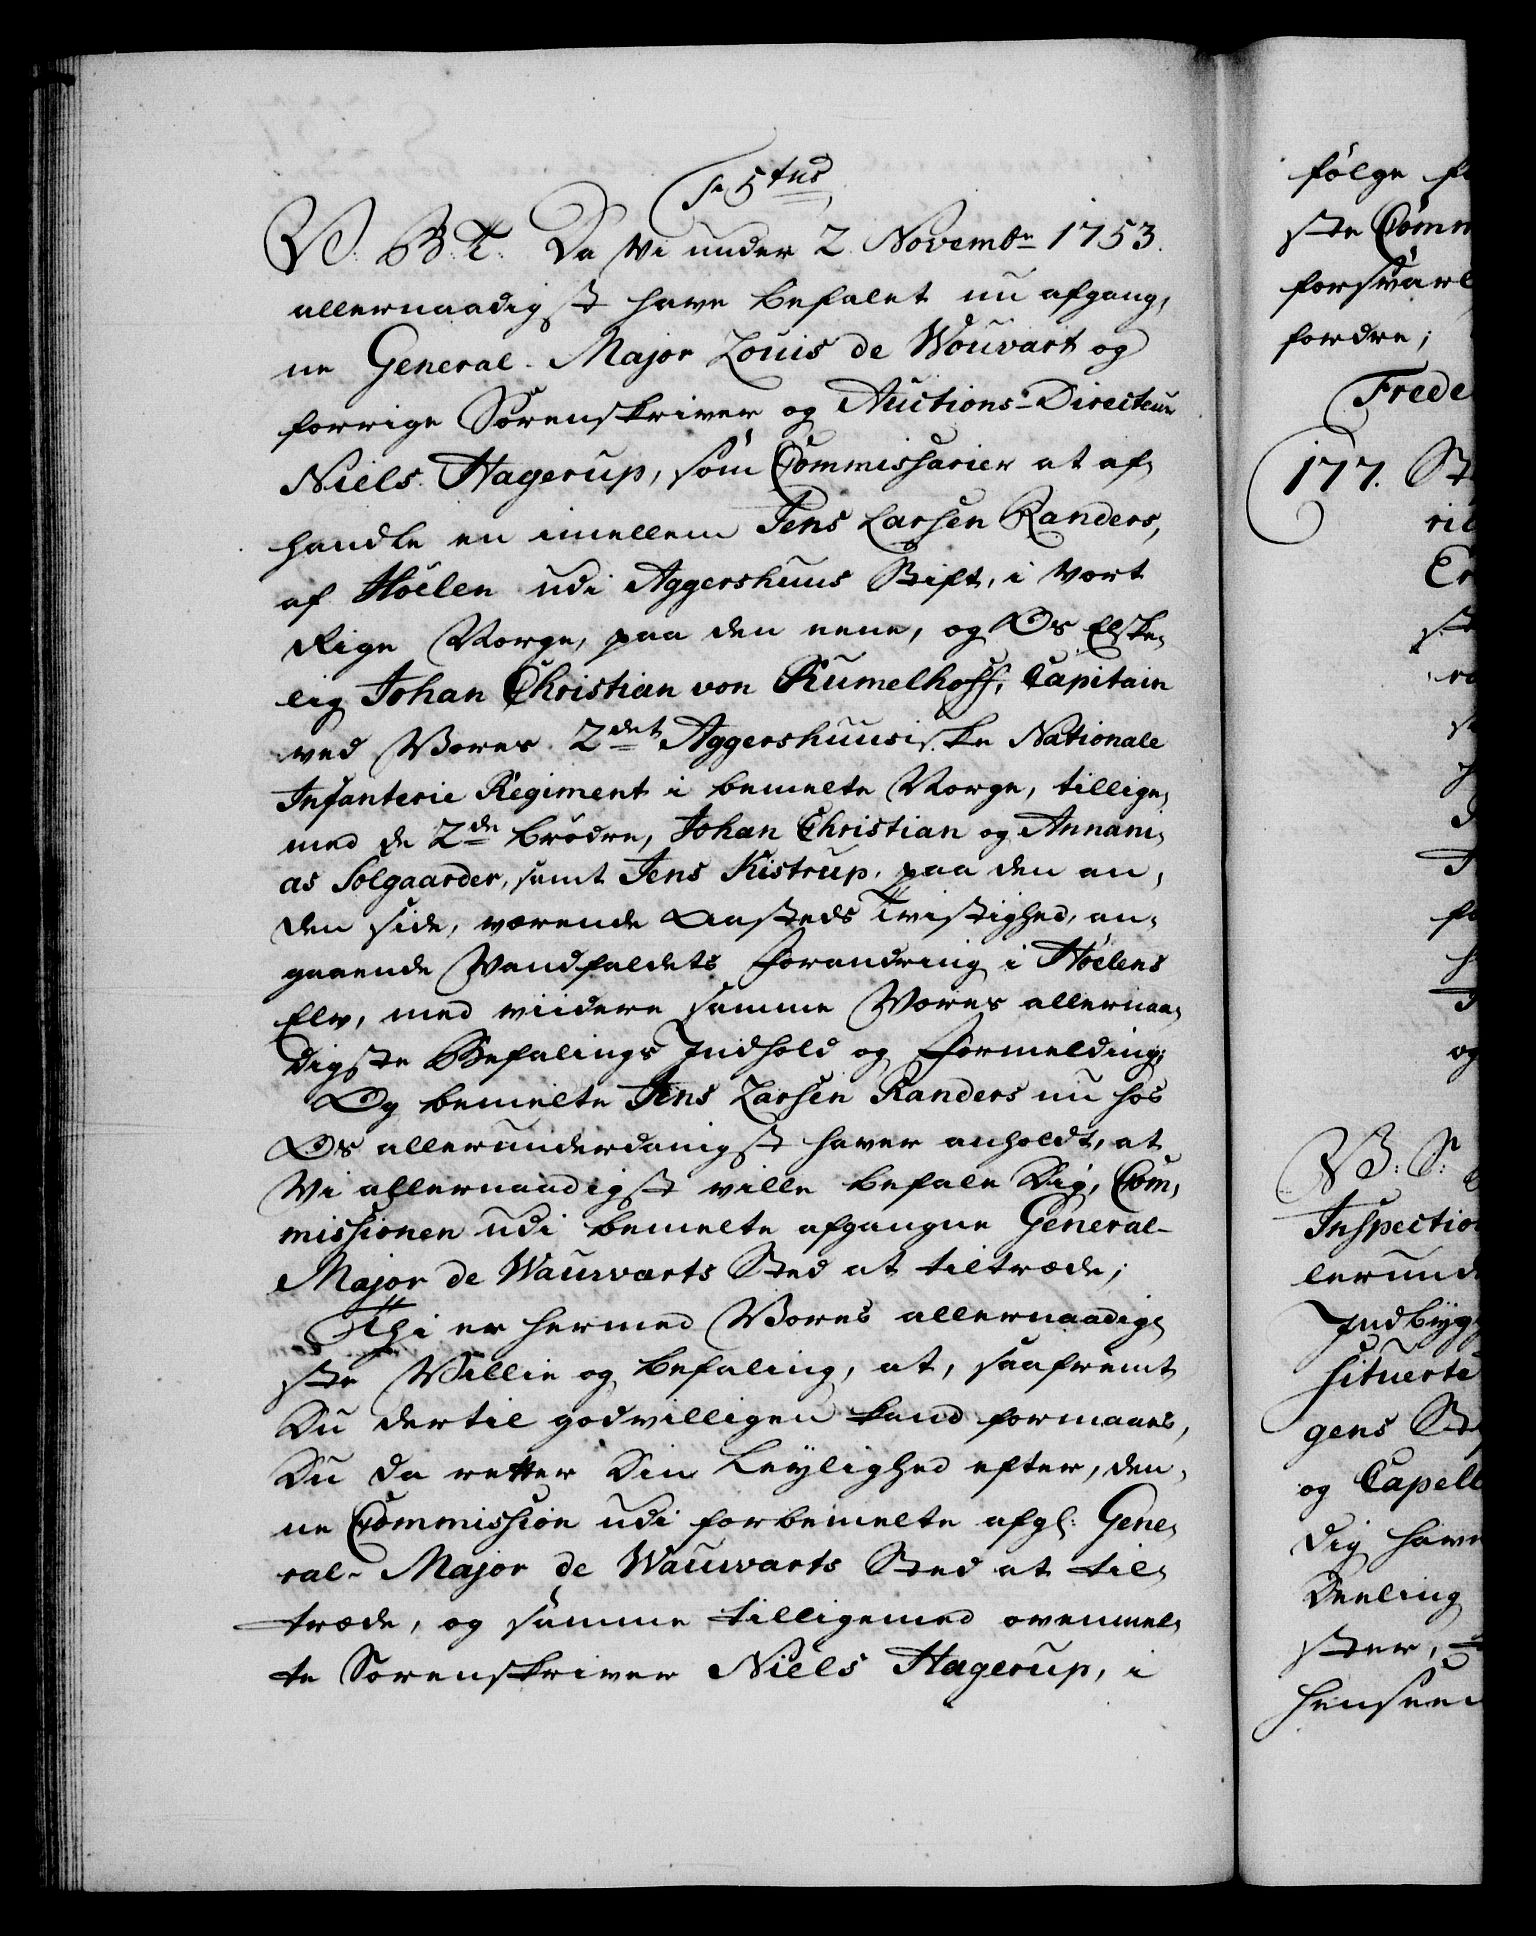 Fr. 5tus
V. G. T. Da Vi under 2 Novembr 1753.
allernaadigst have befalet nu afgang,
ne General-Major Louis de Wouvart og
forrige Sorenskriver og Auctions-Directeur
Niels Hagerup, som Commissarier at af,
handle en imellem Jens Larsen Randers,
af Hölen udi Aggershuus Stift, i Vort
Rige Norge, paa den eene, og Os Elske,
lig Johan Christian von Rumelhoff, Capitain
ved Vores 2det Aggershuusiske Nationale
Infanterie Regiment i bemelte Norge, tillige,
med de 2de brödre, Johan Christian og Annani,
as Solgaarder, samt Jens Kistrup, paa den an,
den side, værende Aasteds Tvistighed, an,
gaaende Vandfaldets Forandring i Hölens
Elv, med viidere samme Vores allernaa,
digste Befalings Indhold og Formelding;
Og bemelte Jens Larsen Randers nu hos
Os allerunderdanigst haver anholdt, at
Vi allernaadigst ville befale Dig, Com,
missionen udi bemelte afgangne General-
Major de Wauwarts Sted at tiltræde;
Thi er hermed Vores allernaadig,
ste Villie og befaling, at, saafremt
Du dertil godvilligen kand formaaes,
Du da retter Din Leylighed efter, den,
ne Commission udi forbemelte afgl: Gene,
ral-Major de Wauwarts Sted at til,
træde, og samme tilligemed ovenmel,
te Sorenskriver Niels Hagerup, i
følge
ste Comm
forsvarl
fordre;
Frede
177. St
ril
og
V: S:
Inspectio
lerund
Indbyg
situerte
gens St
og Capell
Dig have
Deeling
ster,
henseen